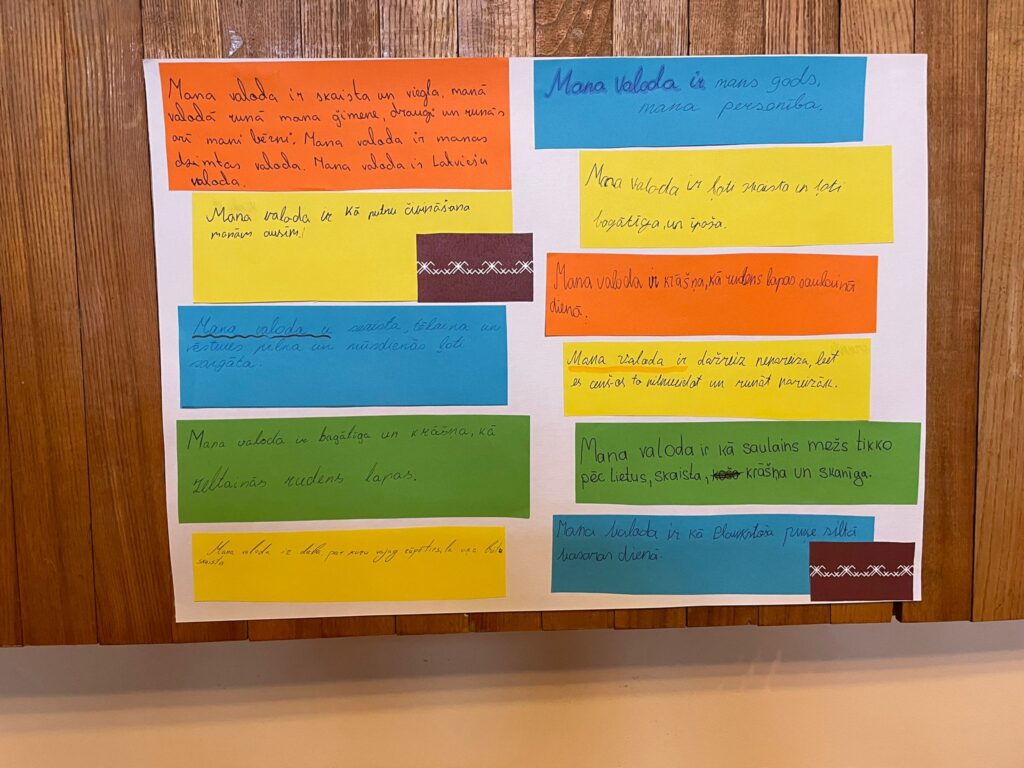 Mana valoda ir skaista un viegla, manā
valodā runā mana ģimene, draugi un runās
arī mani bērni. Mana valoda ir manas
dzimtas valoda. Mana valoda ir Latviešu
valoda.
Mana valoda ir kā putnu čivināšana
manām ausīm!
Mana valoda ir skaista, tēlaina un
vēstures pilna un mūsdienās ļoti
sargāta.
Mana valoda ir bagātīga un krāšņa, kā
zeltainās rudens lapas.
Mana valoda ir daba, par kuru vajag rūpēties, la
skaista
Mana valoda ir mans gods,
mana personība.
Mana valoda ir ļoti skaista un ļoti
bagātīga, un īpaša.
Mana valoda ir krāšņa, kā rudens lapas saulainā
dienā.
Mana valoda ir dažreiz nepareiza, bet
es cenšos to pilnveidot un runāt pareizāk.
Mana valoda ir kā saulains mežs tikko
pēc lietus, skaista, krāšņa un skanīga.
Mana valoda ir kā plaukstoša puķe siltā
vasaras dienā.